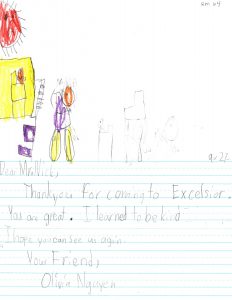 rm 114
9-27
Dear Mrs. Vick,
Thankyou For coming to Excelsior.
You are great. I learned to be kind
I hope you can see us again.
Your Friend,
Olivia Nguyen